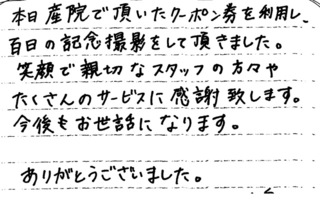 本日産院で頂いたクーポン券を利用し、
百日の記念撮影をして頂きました。
笑顔で親切なスタッフの方々や
たくさんのサービスに感謝致します。
今後もお世話になります。
ありがとうございました。